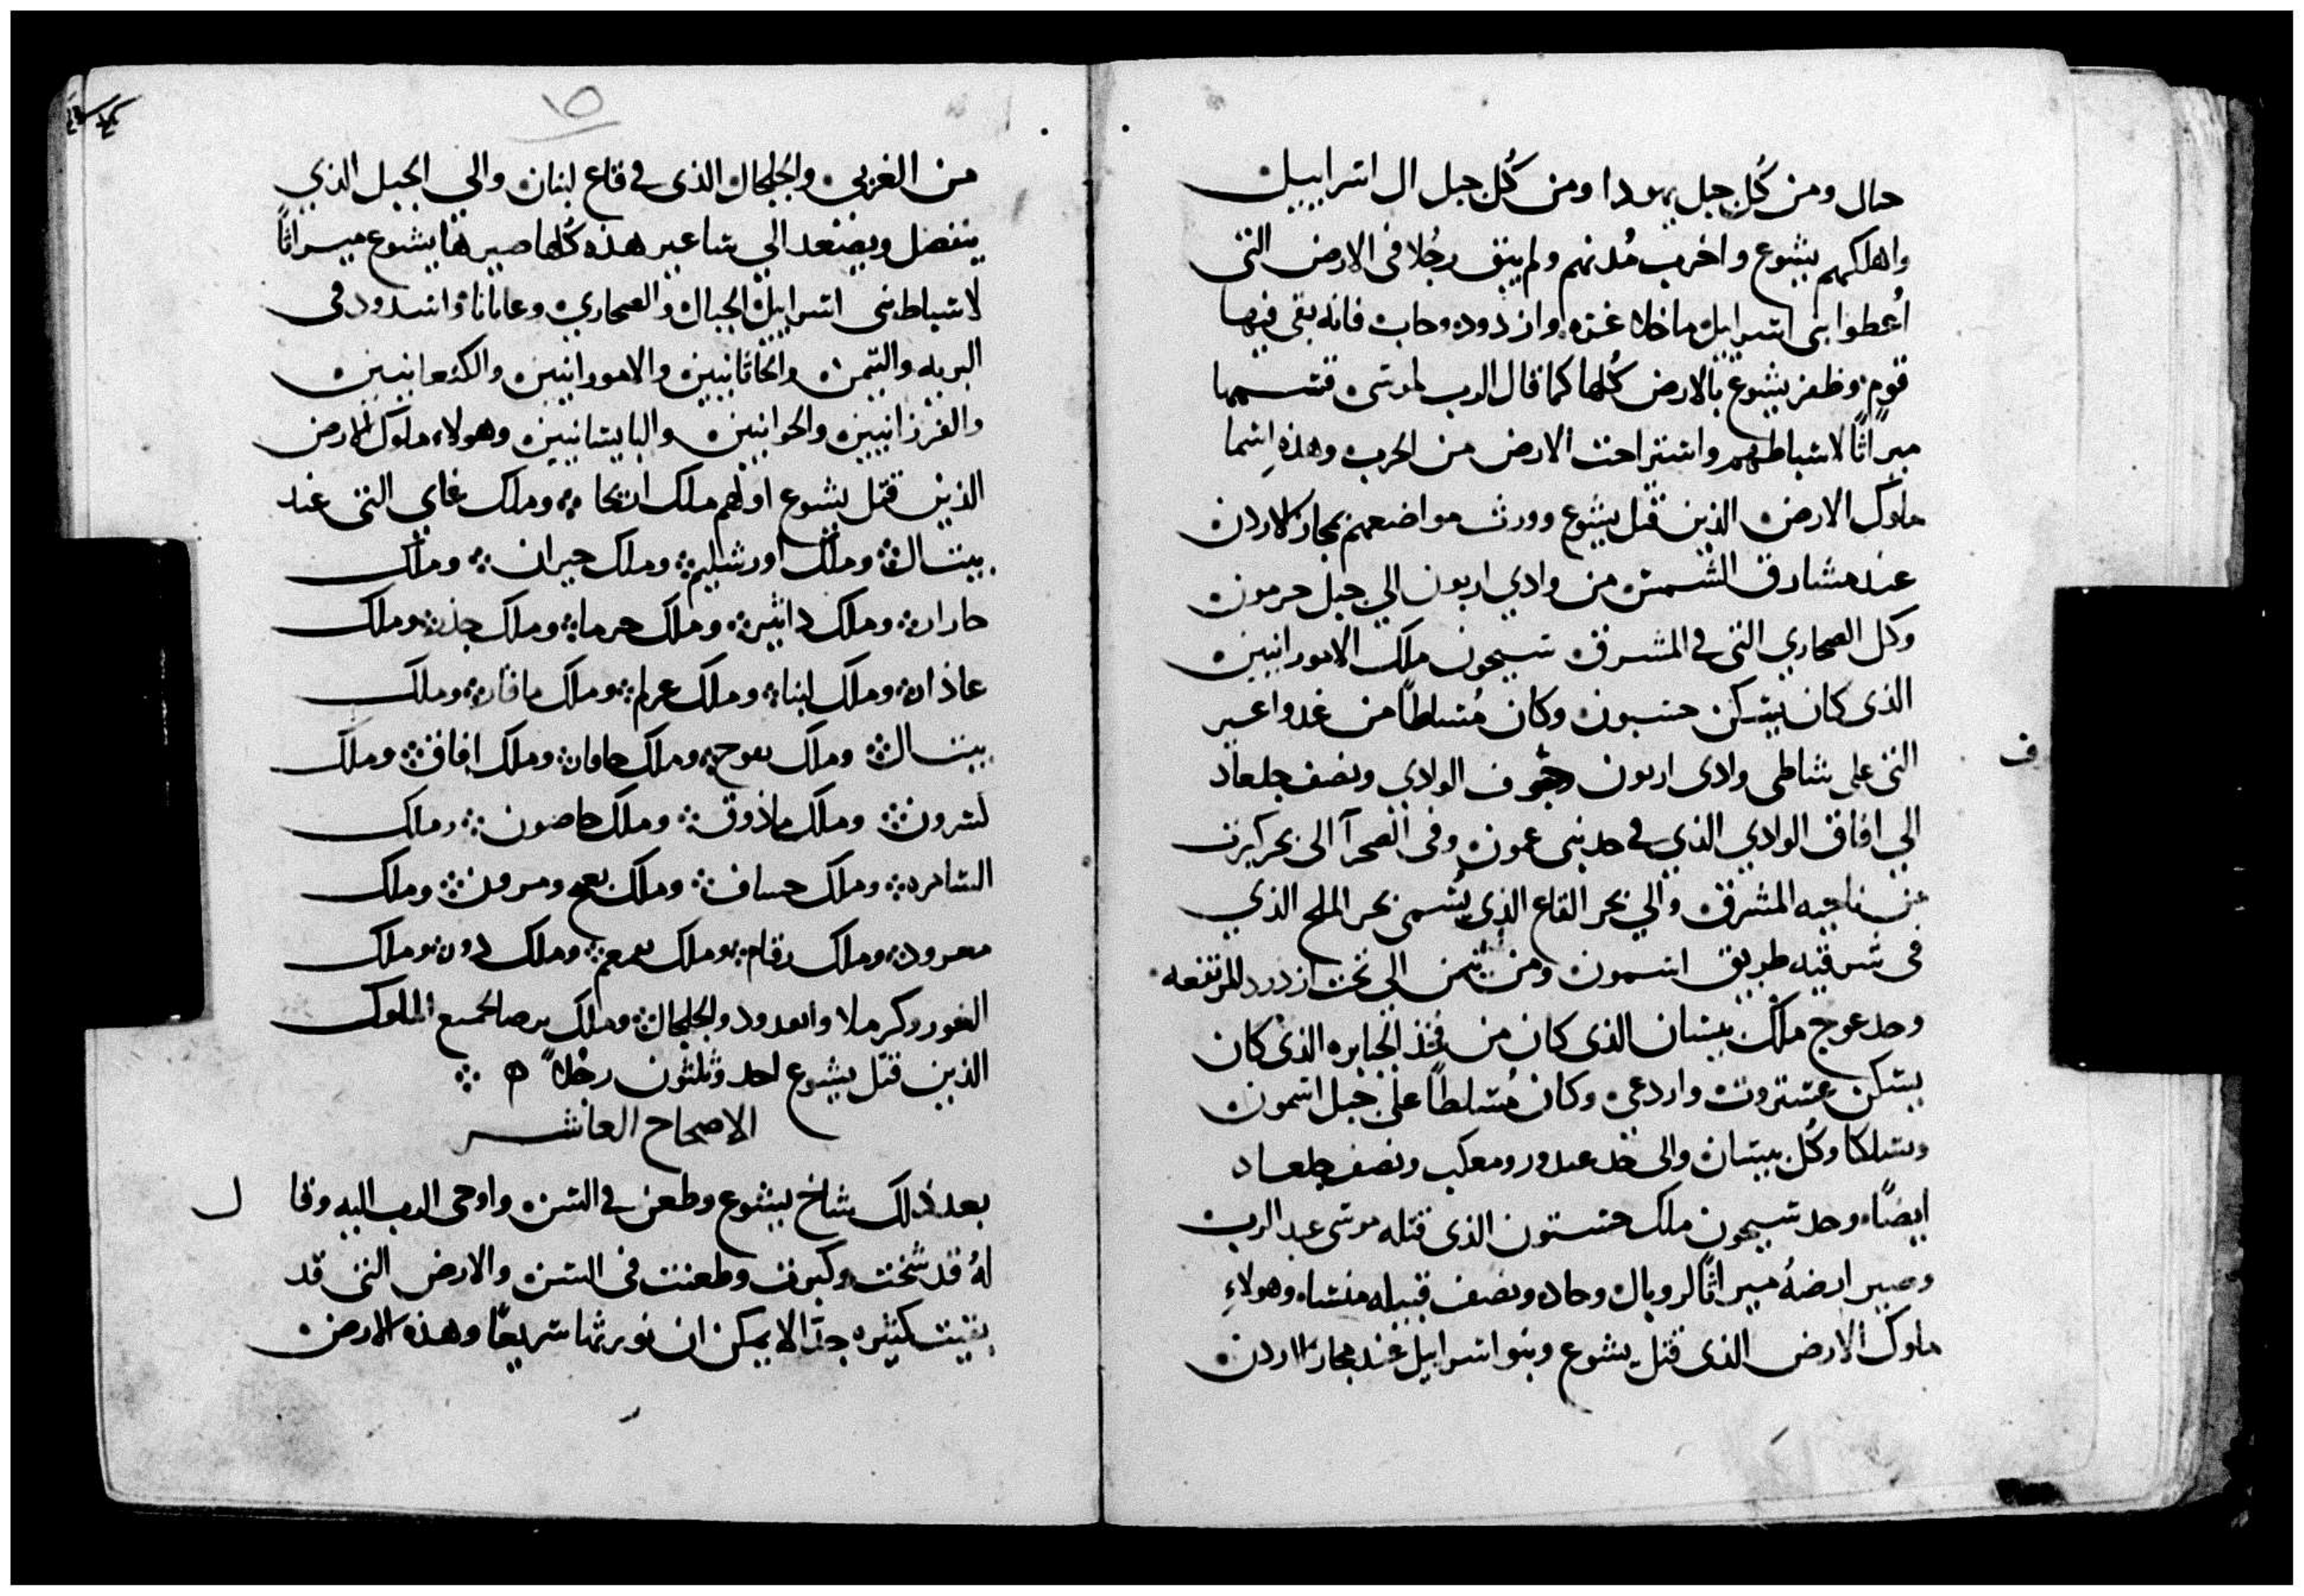 حال ومن كُل جبل يهودا ومن كُل جبل ال اسراييل
واهلكهم يشوع واخرب مُدنهم ولم يبق رجُلا فى الارض التى
اُعطوا بنى اسراييل ماخلا غزه وازدود وحاب فانه بقى فيها
قوم وظفر يشوع بالارض كُلها كما قال الرب لموسى فقسمها
ميراثًا لاسباطهم واستراحت الارض من الحرب وهذه اسما
ملوك الارض الذين قتل يشوع وورث مواضعهم بمجاز الاردن
عند مشارق الشمس من وادي ارنون الي جبل حرمون
وكل الصحاري التى في المشرق سيحون ملك الامورانيين
الذى كان يسكن حسبون وكان مُسلطًا من عدواعير
التى على شاطى وادى ارنون وجوف الوادي ونصف جلعاد
الي افاق الوادي الذي في حد بنى عمون وفى الصحرآ الى بحر كنرت
عن ناحيه المشرق والي بحر القاع الذى يُسمى بحر الملح الذي
فى شرقيه طريق اسمون ومن تيمن الى تحت ازدرد المرتفعه
وحد عوج ملك بيسان الذى كان من فخذ الجبابره الذى كان
يسكن عستروت واردعى وكان مُسلطًا على جبل اسمون
وسلكا وكُل بيسان والى حد عبدور ومعكب ونصف جلعاد
ايضًا وحد سيحون ملك حسبون الذى قتله موسى عبد الرب
وصير ارضهُ ميراثًا لروبال وحاد ونصف قبيله منشا وهولاءِ
ملوك الارض الذى قتل يشوع وبنو اسراييل عند مجاز الاردن
ف
١٥
من الغربي والجلجال الذى في قاع لبنان والي الجبل الذي
ينفصل ويصعد الي ساعير هذه كُلها صيرها يشوع ميراثًا
لاسباط بنى اسراييل الجبال والصحاري وعابانا واسدود فى
البريه والتيمن والحاثانيين والامورانيين والكنعانيين
والفرزانيين والحوانيين واليابسانيين وهولاء ملوك الارض
الذين قتل يشوع اولهم ملك اريحا وملك عاي التى عند
بيت ال وملك اورشليم وملك حبران وملك
حاران وملك دابير وملك حرما وملك جدر وملك
عاذان وملك لبنا وملك عرلم وملك ماقار وملك
بيت ال وملك بفوح وملك حافان وملك افاق وملك
لشرون وملك ماذوق وملك حاصون وملك
السامره وملك حساف وملك نعح ومرون وملك
معرود وملك رقام وملك نعمعم وملك دون وملك
الغور وكرملا وابعدود والجلجال وملك برصا لجميع الملوك
الذين قتل يشوع احد وثلثون رجُلاً ه
الاصحاح العاشر
بعد ذلك شاخ يشوع وطعن في السن واوحى الرب اليه وقا
ل
لهُ قد شخت وكبرت وطعنت فى السن والارض التى قد
بقيت كثيره جدًا لا يمكن ان نورثها سريعًا وهذه الارض